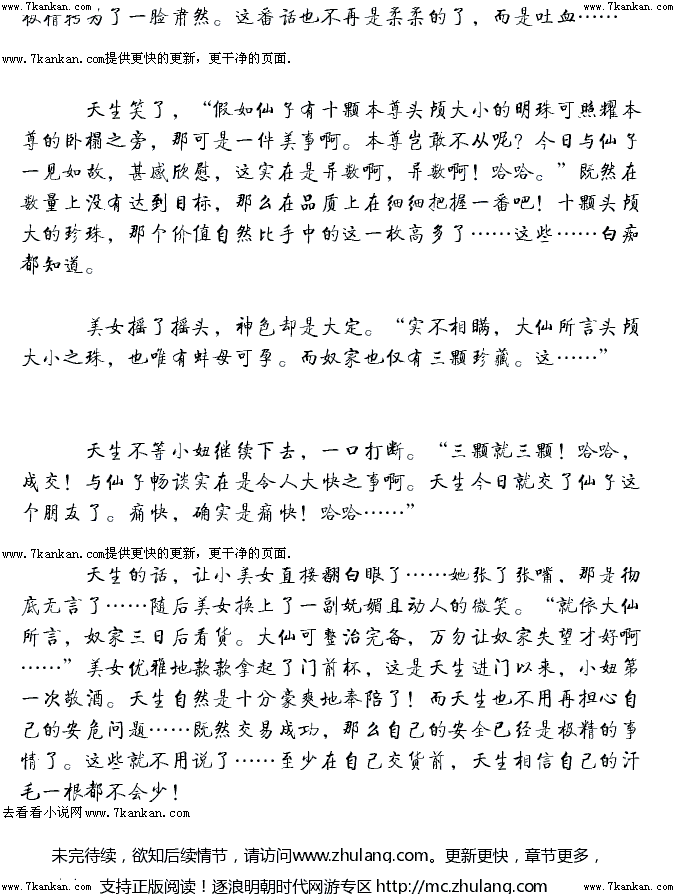 www.7kankan.com www.7kankan.com
极精转为了一脸肃然。这番话也不再是柔柔的了，而是吐血……
www.7kankan.com提供更快的更新，更干净的页面.
天生笑了，“假如仙子有十颗本尊头颅大小的明珠可照耀本
尊的卧榻之旁，那可是一件美事啊。本尊岂敢不从呢？今日与仙子
一见如故，甚感欣慰，这实在是异数啊，异数啊！哈哈。”既然在
数量上没有达到目标，那么在品质上在细细把握一番吧！十颗头颅
大的珍珠，那个价值自然比手中的这一枚高多了……这些……白痴
都知道。
美女摇了摇头，神色却是大定。“实不相瞒，大仙所言头颅
大小之珠，也唯有蚌母可孕。而奴家也仅有三颗珍藏。这……”
天生不等小妞继续下去，一口打断。“三颗就三颗！哈哈，
成交！与仙子畅谈实在是令人大快之事啊。天生今日就交了仙子这
个朋友了。痛快，确实是痛快！哈哈……”
www.7kankan.com提供更快的更新，更干净的页面.
天生的话，让小美女直接翻白眼了……她张了张嘴，那是彻
底无言了……随后美女换上了一副妩媚且动人的微笑。“就依大仙
所言，奴家三日后看货。大仙可整治完备，万勿让奴家失望才好啊
……”美女优雅地款款拿起了门前杯，这是天生进门以来，小妞第
一次敬酒。天生自然是十分豪爽地奉陪了！而天生也不用再担心自
己的安危问题……既然交易成功，那么自己的安全已经是极精的事
情了。这些就不用说了……至少在自己交货前，天生相信自己的汗
毛一根都不会少！
去看看小说网www.7kankan.com
未完待续，欲知后续情节，请访问www.zhulang.com。更新更快，章节更多，
支持正版阅读！逐浪明朝时代网游专区 http://mc.zhulang.com
www.7kankan.com www.7kankan.com